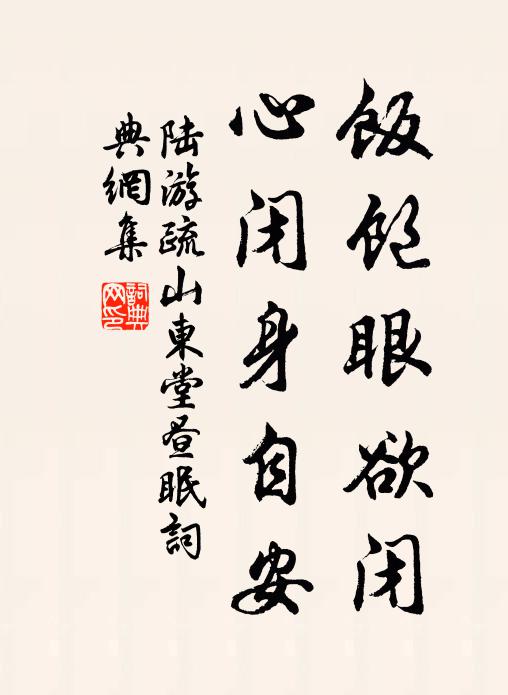 飯飽眼欲闭
心闭身自安
陆游疏山東堂昼眠詞
典網集
詞典网印